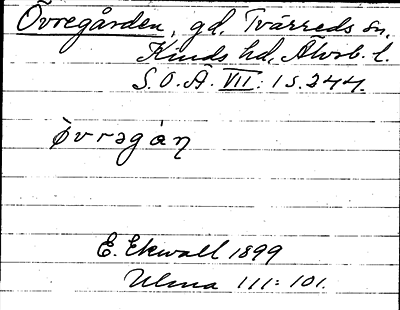 Övregården, gd. Tvärreds sn.
Kinds hd, Älvsb. l.
S.O.Ä. VII: 1 s. 244.
òvrəgàn̥
E. Ekwall 1899
Ulma 111: 101.